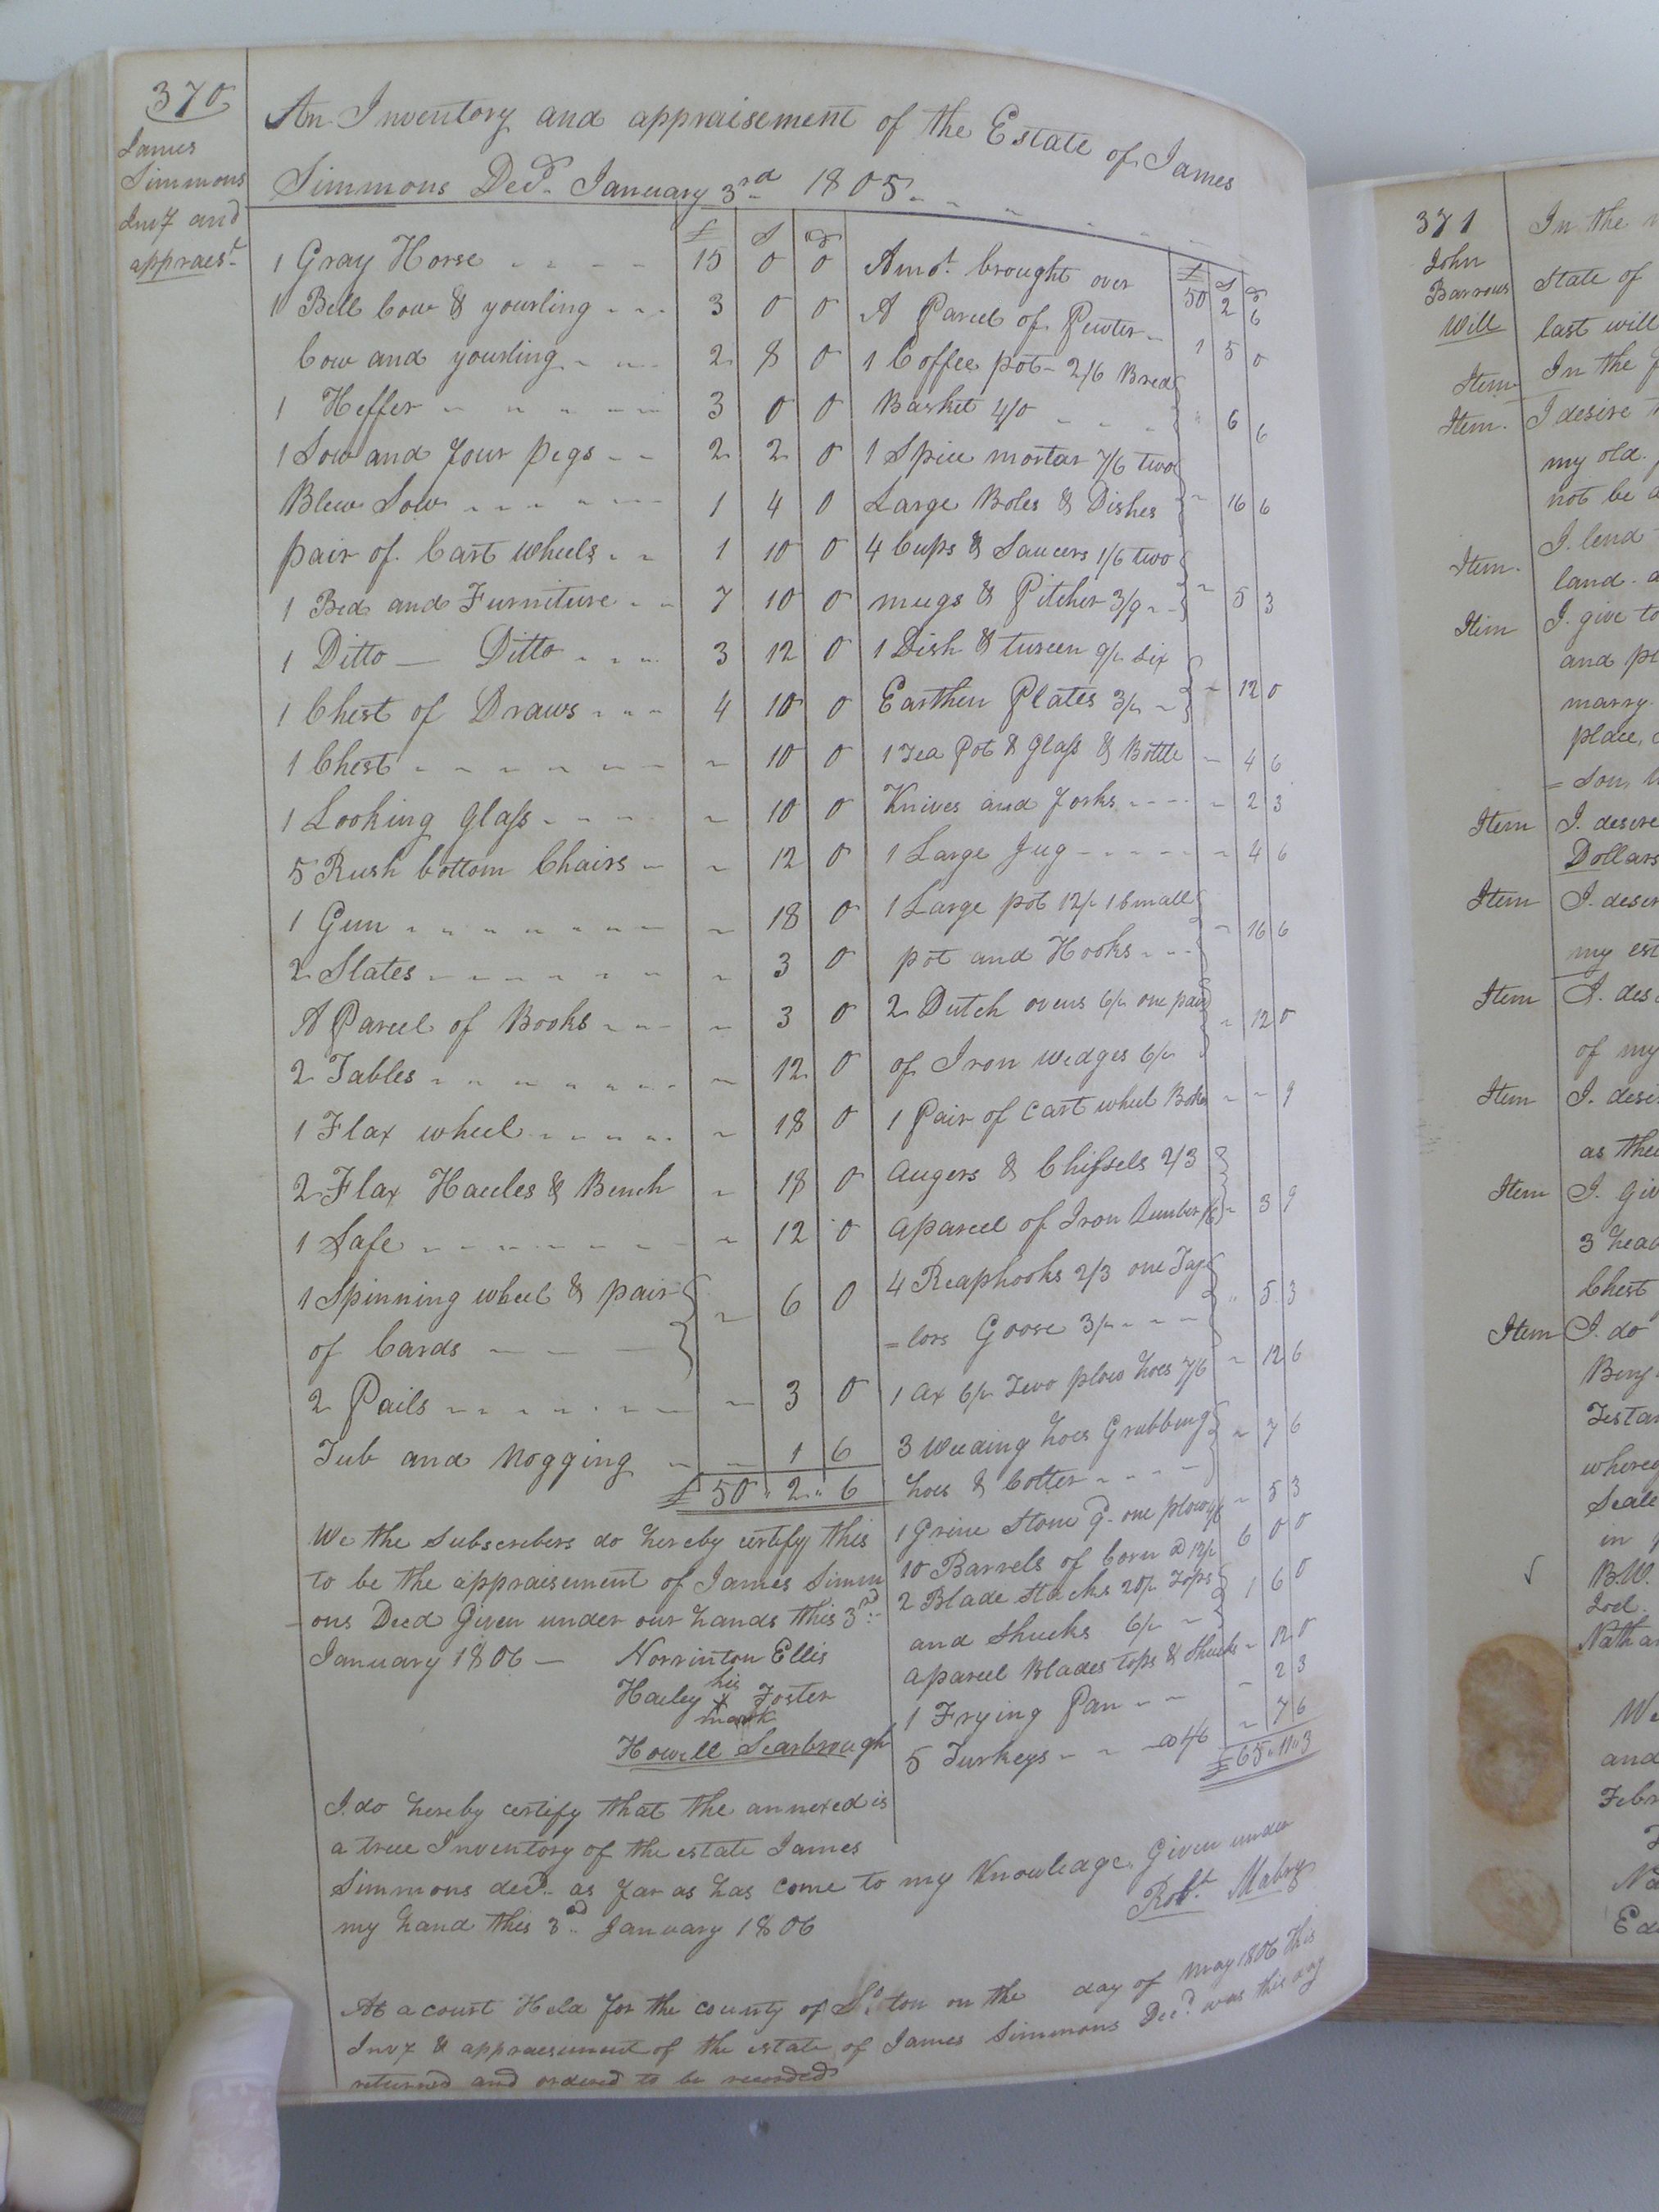 370
James
Simmons
Inv7 and
appraes.t
An Inventory and appraisement of the Estate of James
Simmons Decd. January 3rd 1805
£ S D
1 Gray Horse 15 0 0
1 Bell Cow & yourling 3 0 0
Cow and yourling 2 8 0
1 Heffer 3 0 0
1 Sow and four pigs 2 2 0
Blew Sow 1 4 0
pair of Cart wheels 1 10 0
1 Bed and Furniture 7 10 0
1 Ditto — Ditto 3 12 0
1 Chest of Draws 4 10 0
1 Chest " 10 0
1 Looking Glass " 10 0
5 Rush bottom Chairs " 12 0
1 Gun " 18 0
2 Slates " 3 0
A Parcel of Books " 3 0
2 Tables " 12 0
1 Flax wheel " 18 0
2 Flax Hacles & Bench " 18 0
1 Safe " 12 0
1 Spinning wheel & pair
of Cards " 6 0
2 Pails " 3 0
Tub and Nogging " 1 6
£ 50 " 2 " 6
We the Subscribers do hereby certify this
to be the appraisement of James Simm
ons Decd Given under our hands this 3d
January 1806 — Norrinton Ellis
his
Haley X Foster
mark
Howell Scarbrough
£ S D
Amot. brought over 50 2 6
A Parcel of Pewter 1 5 0
1 Coffee pot 2/6 Bred
Basket 4/0 " 6 6
1 Spice mortar 7/6 two
Large Boles & Dishes " 16 6
4 Cups & Saucers 1/6 two
mugs & Pitcher 3/9 " 5 3
1 Dish & tureen 9/ six
Earthen Plates 3/ " 12 0
1 Tea Pot & Glass & Bottle " 4 6
Knives and forks " 2 3
1 Large Jug " 4 6
1 Large pot 12/ 1 Small
pot and Hooks " 16 6
2 Dutch ovens 6/ one pair
of Iron wedges 6/ " 12 0
1 Pair of Cart wheel Boxes " " 9
Augers & Chissels 2/3
a parcel of Iron Lumber 1/6 " 3 9
4 Reaphooks 2/3 one Tay
=lors Goose 3/ " 5 3
1 Ax 6/ Two plow hoes 7/6 " 12 6
3 Weeding hoes Grubbing
hoes & Colter " 7 6
1 Grine Stone 9d one plow 4/6 " 5 3
10 Barrels of Corn @ 12/ 6 0 0
2 Blade Stacks 20/ Tops
and Shucks 6/ 1 6 0
a parcel Blades tops & Shucks " 12 0
1 Frying Pan " 2 3
5 Turkeys @ 1/6 " 7 6
£ 65 " 11 " 3
I do hereby certify that the annexed is
a true Inventory of the estate James
Simmons decd. as far as has come to my Knowledge. Given under
my hand this 3d. January 1806
Robt. Mabry
At a court Held for the county of So ton on the day of may 1806 this
Inv7 & appraisement of the estate of James Simmons Decd. was this day
returned and ordered to be recorded
371
John
Barrows
Will
In the
State of
last will
Item In the
Item. I desire
my old
not be
Item. I. lend
land.
Item I. give to
and
marry.
place,
= Son,
Item I. desire
Dollars
Item I. desire
my est
Item I. des
of my
Item I. desi
as the
Item I. giv
3 head
Chest
Item I. do
Benj
Testa
where
Seale
in
B.W.
Joel
Natha
We
and
Febr
Na
Ed